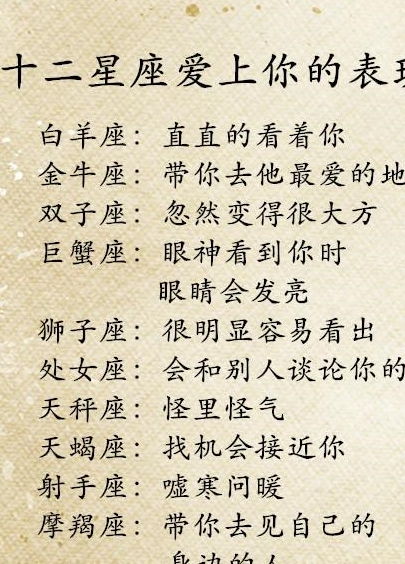 十二星座爱上你的表
白羊座：直直的看着你
金牛座：带你去他最爱的地
双子座：忽然变得很大方
巨蟹座：眼神看到你时
眼睛会发亮
狮子座：很明显容易看出
处女座：会和别人谈论你的
天秤座：怪里怪气
天蝎座：找机会接近你
射手座：嘘寒问暖
摩羯座：带你去见自己的
身边的人